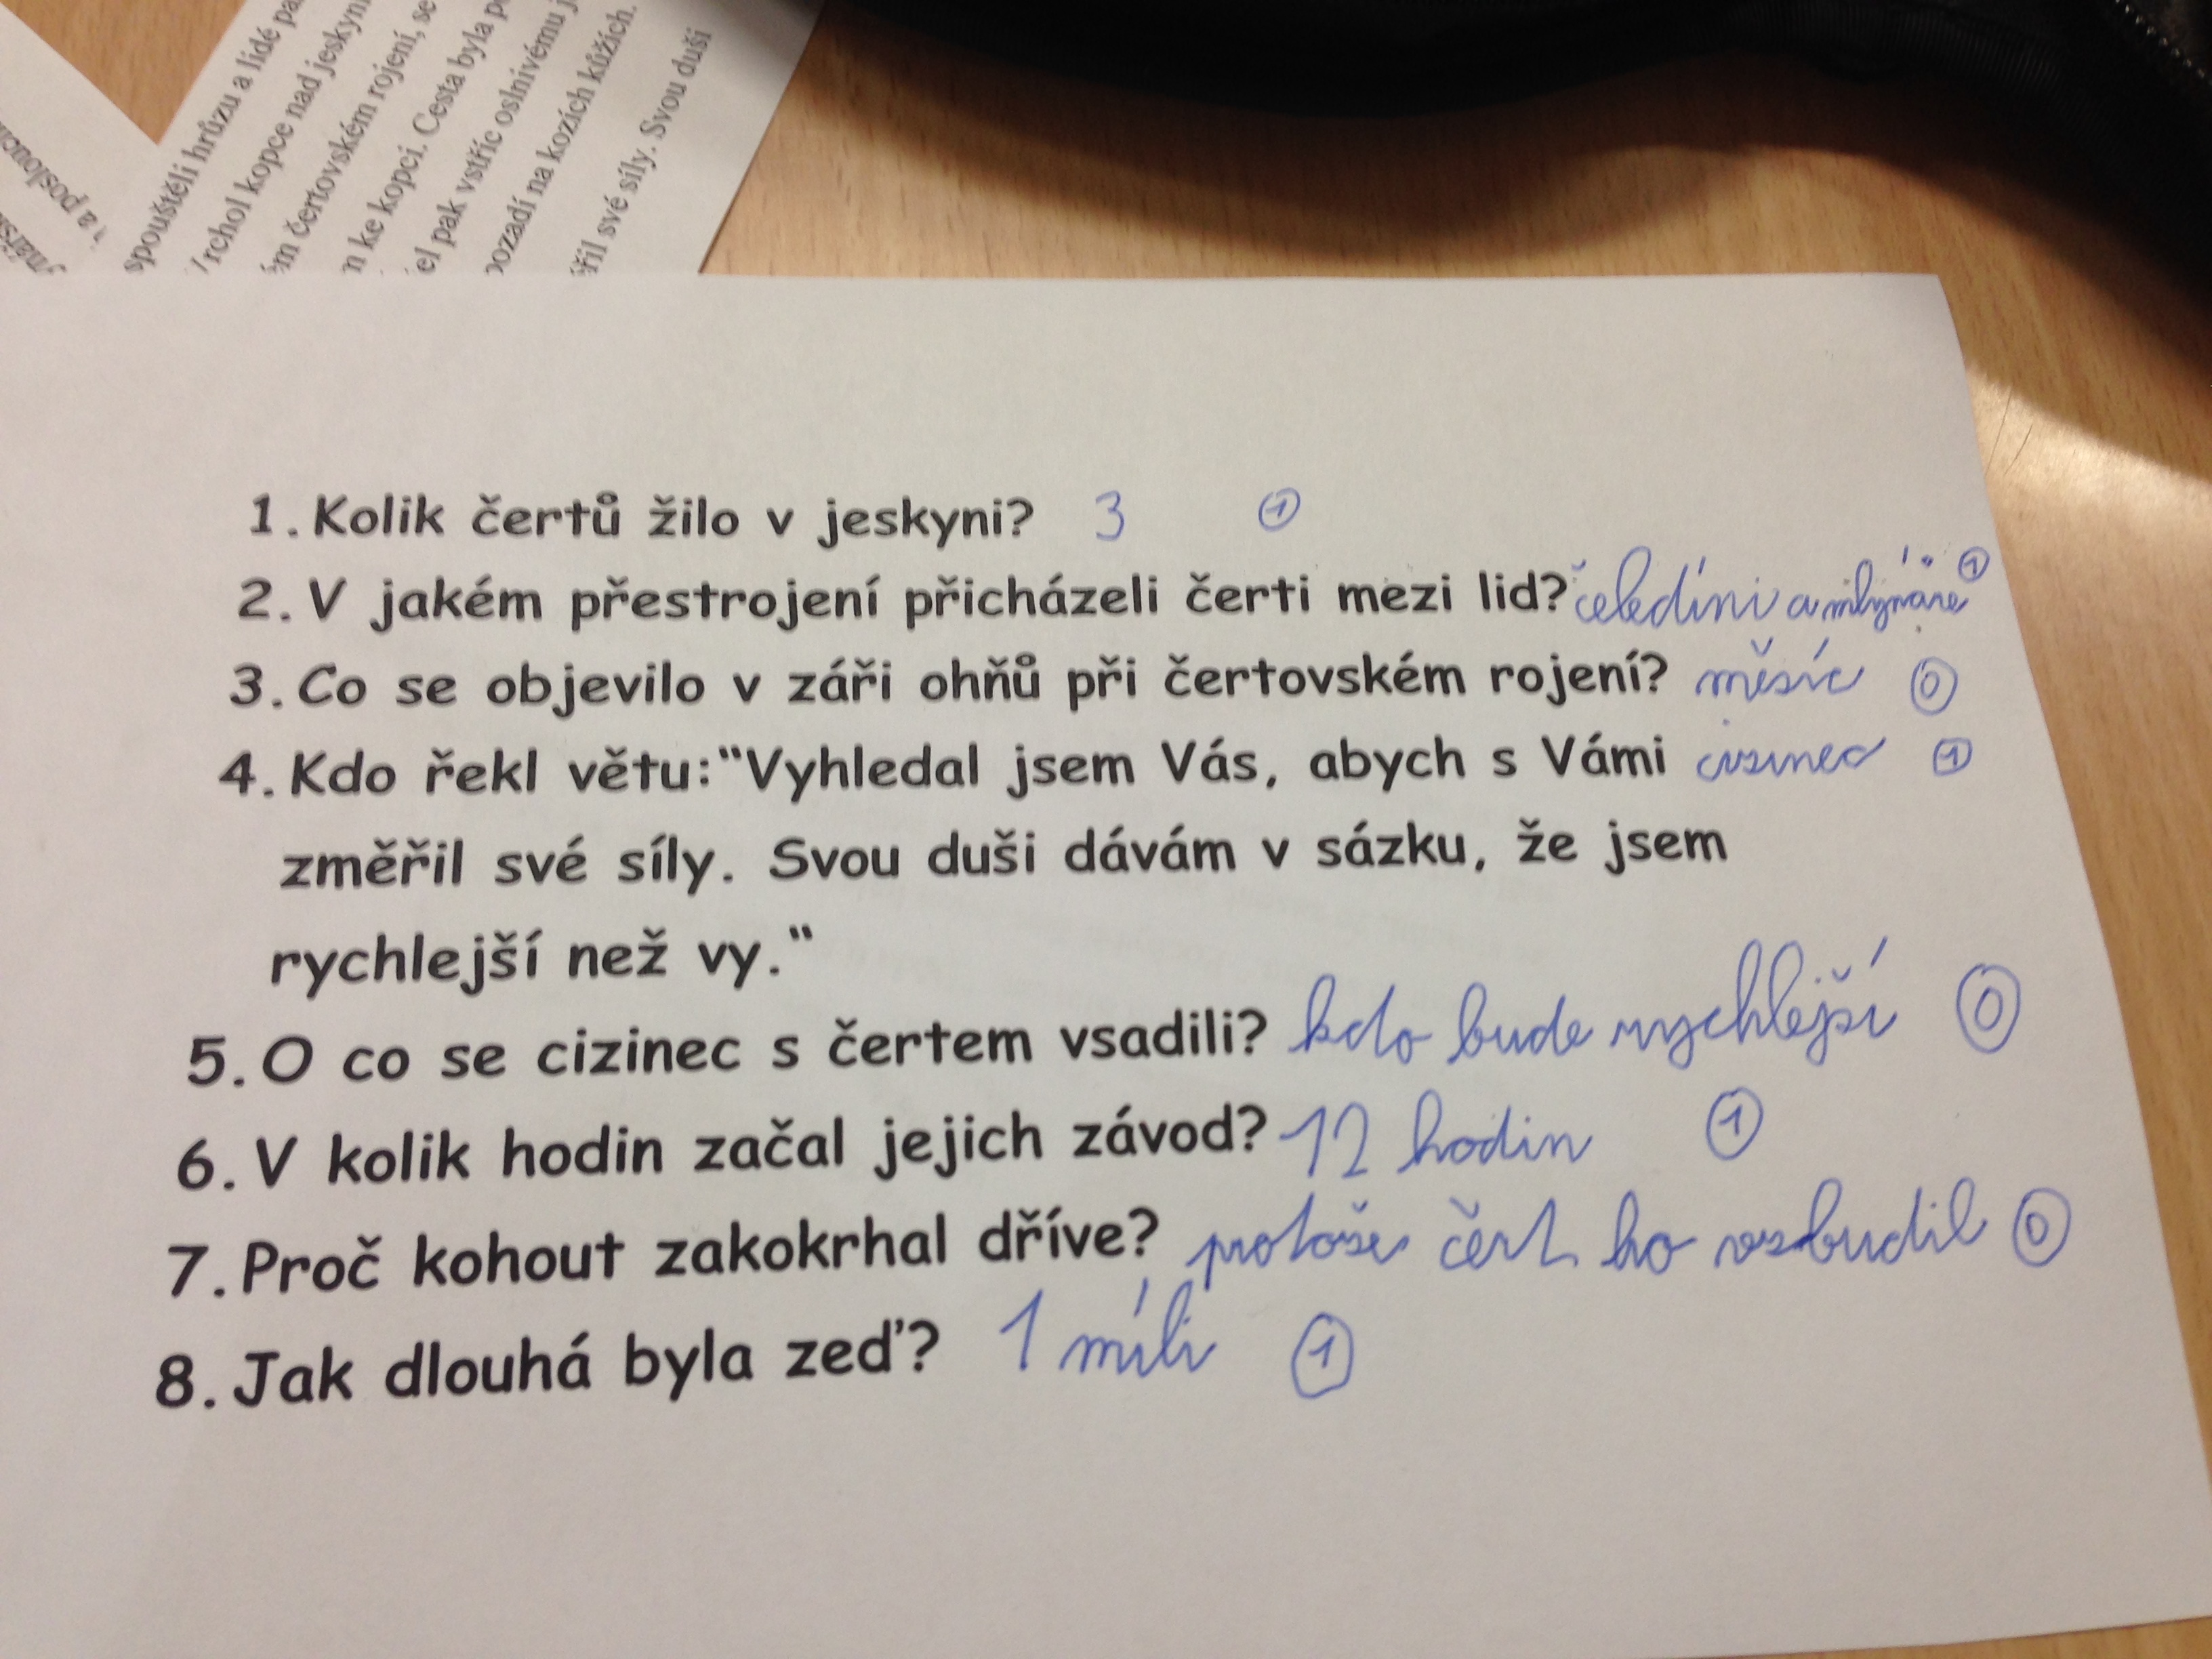 a poslouch
spouštěli hrůzu a lidé pa
Vrchol kopce nad jeskyn
ém čertovském rojení, se
n ke kopci. Cesta byla p
el pak vstříc oslnivému j
pozadí na kozích kůžích.
ěřil své síly. Svou duši
1. Kolik čertů žilo v jeskyni? 3 1
2. V jakém přestrojení přicházeli čerti mezi lid? čeledíni a mlynáře 1
3. Co se objevilo v záři ohňů při čertovském rojení? měsíc 0
4. Kdo řekl větu:"Vyhledal jsem Vás, abych s Vámi cizinec 1
změřil své síly. Svou duši dávám v sázku, že jsem
rychlejší než vy."
5. O co se cizinec s čertem vsadili? kdo bude rychlejší 0
6. V kolik hodin začal jejich závod? 12 hodin 1
7. Proč kohout zakokrhal dříve? protože čert ho vzbudil 0
8. Jak dlouhá byla zeď? 1 míli 1